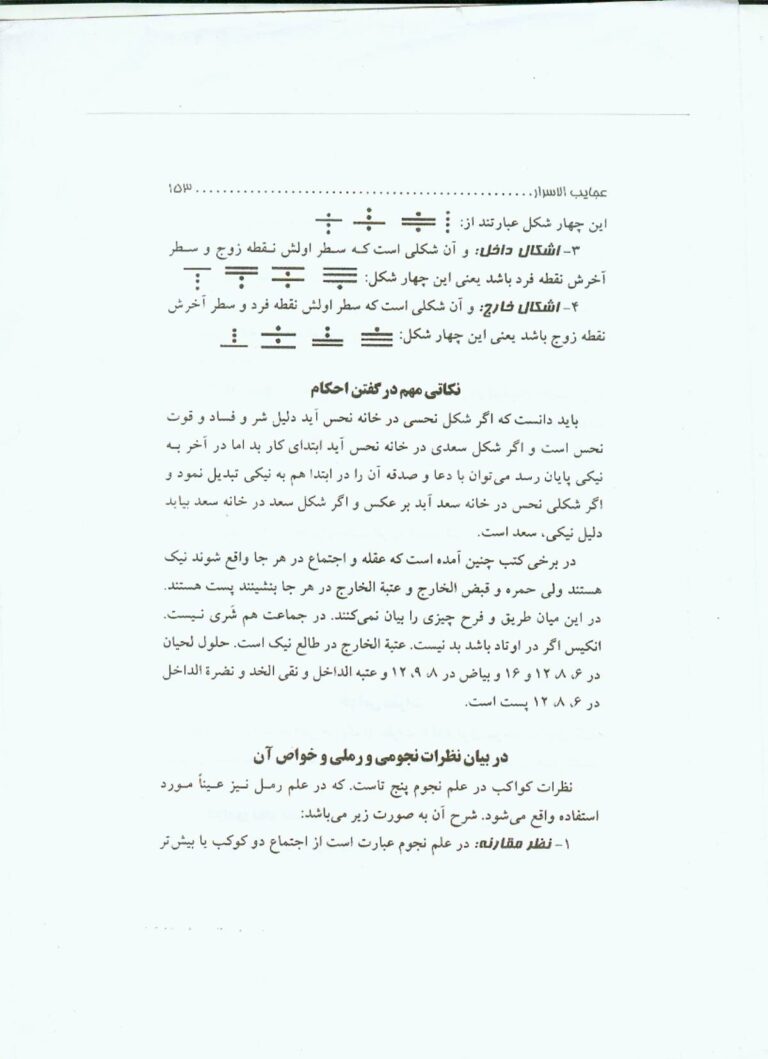 عجایب الاسرار................................................ ۱۵۳
این چهار شکل عبارتند از:
۳- اشکال داخل: و آن شکلی است که سطر اولش نقطه زوج و سطر
آخرش نقطه فرد باشد یعنی این چهار شکل:
۴- اشکال خارج: و آن شکلی است که سطر اولش نقطه فرد و سطر آخرش
نقطه زوج باشد یعنی این چهار شکل:
نکاتی مهم در گفتن احکام
باید دانست که اگر شکل نحسی در خانه نحس آید دلیل شر و فساد و قوت
نحس است و اگر شکل سعدی در خانه نحس آید ابتدای کار بد اما در آخر به
نیکی پایان رسد می‌توان با دعا و صدقه آن را در ابتدا هم به نیکی تبدیل نمود و
اگر شکلی نحس در خانه سعد آید بر عکس و اگر شکل سعد در خانه سعد بیاید
دلیل نیکی، سعد است.
در برخی کتب چنین آمده است که عقله و اجتماع در هر جا واقع شوند نیک
هستند ولی حمره و قبض الخارج و عتبة الخارج در هر جا بنشینند پست هستند.
در این میان طریق و فرح چیزی را بیان نمی‌کنند. در جماعت هم شَری نیست.
انکیس اگر در اوتاد باشد بد نیست. عتبة الخارج در طالع نیک است. حلول لحیان
در ۶، ۸، ۱۲ و ۱۶ و بیاض در ۸، ۹، ۱۲ و عتبه الداخل و نقی الخد و نضرة الداخل
در ۶، ۸، ۱۲ پست است.
در بیان نظرات نجومی و رملی و خواص آن
نظرات کواکب در علم نجوم پنج تاست. که در علم رمل نیز عیناً مورد
استفاده واقع می‌شود. شرح آن به صورت زیر می‌باشد:
۱- نظر مقارنه: در علم نجوم عبارت است از اجتماع دو کوکب یا بیش‌تر